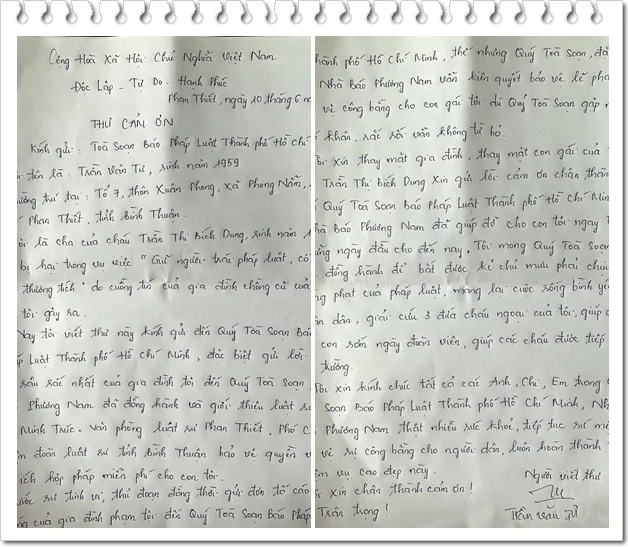 Cộng Hoà Xã Hội Chủ Nghĩa Việt Nam
Độc Lập - Tự Do - Hạnh Phúc
Phan Thiết, ngày 10 tháng 6
THƯ CẢM ƠN
Kính gửi: Toà Soạn Báo Pháp Luật Thành phố Hồ Chí
tôi tên là: Trần Văn Tư, sinh năm 1959
thường trú tại: Tổ 7, thôn Xuân Phong, xã Phong Nẫm,
Phan Thiết, tỉnh Bình Thuận.
là cha của cháu Trần Thị Bích Dung, sinh năm
bị hại trong vụ việc "Giữ người trái pháp luật, cố
thương tích" do cuồng tín của gia đình chồng cũ của
tôi gây ra.
Nay tôi viết thư này kính gửi đến Quý Toà Soạn Báo
Luật Thành phố Hồ Chí Minh, đặc biệt gửi lời
sâu sắc nhất của gia đình tôi đến Quý Toà Soạn
Phương Nam đã đồng hành và giới thiệu luật sư
Minh Trúc - Văn phòng luật sư Phan Thiết, Phó C
đoàn luật sư tỉnh Bình Thuận bảo vệ quyền và
ích hợp pháp miễn phí cho con tôi.
sự tinh vi, thủ đoạn đồng thời gửi đơn tố cáo
của gia đình phạm tội đến Quý Toà Soạn Báo Pháp
thành phố Hồ Chí Minh, thế nhưng Quý Toà Soạn, đặ
Nhà Báo Phương Nam vẫn kiên quyết bảo vệ lẽ phả
vệ công bằng cho con gái tôi dù Quý Toà Soạn gặp n
khăn, rắc rối vẫn không từ bỏ.
Tôi xin thay mặt gia đình, thay mặt con gái của
Trần Thị Bích Dung xin gửi lời cảm ơn chân thàn
Quý Toà Soạn Báo Pháp Luật Thành phố Hồ Chí Minh
Nhà Báo Phương Nam đã giúp đỡ cho con tôi ngay
những ngày đầu cho đến nay. Tôi mong Quý Toà Soạn
đồng hành để bắt được kẻ chủ mưu phải chịu
phạt của pháp luật, mang lại cuộc sống bình yên
dân, giải cứu 3 đứa cháu ngoại của tôi, giúp c
con sớm ngày đoàn viên, giúp các cháu được tiếp
trường.
Tôi xin kính chúc tất cả các Anh, Chị, Em trong
Soạn Báo Pháp Luật Thành phố Hồ Chí Minh, Nh
Phương Nam thật nhiều sức khoẻ, tiếp tục sứ m
vệ sự công bằng cho người dân, luôn hoàn thành
vụ cao đẹp này.
xin chân thành cảm ơn!
Trân trọng!
Người viết thư
Trần Văn Tư